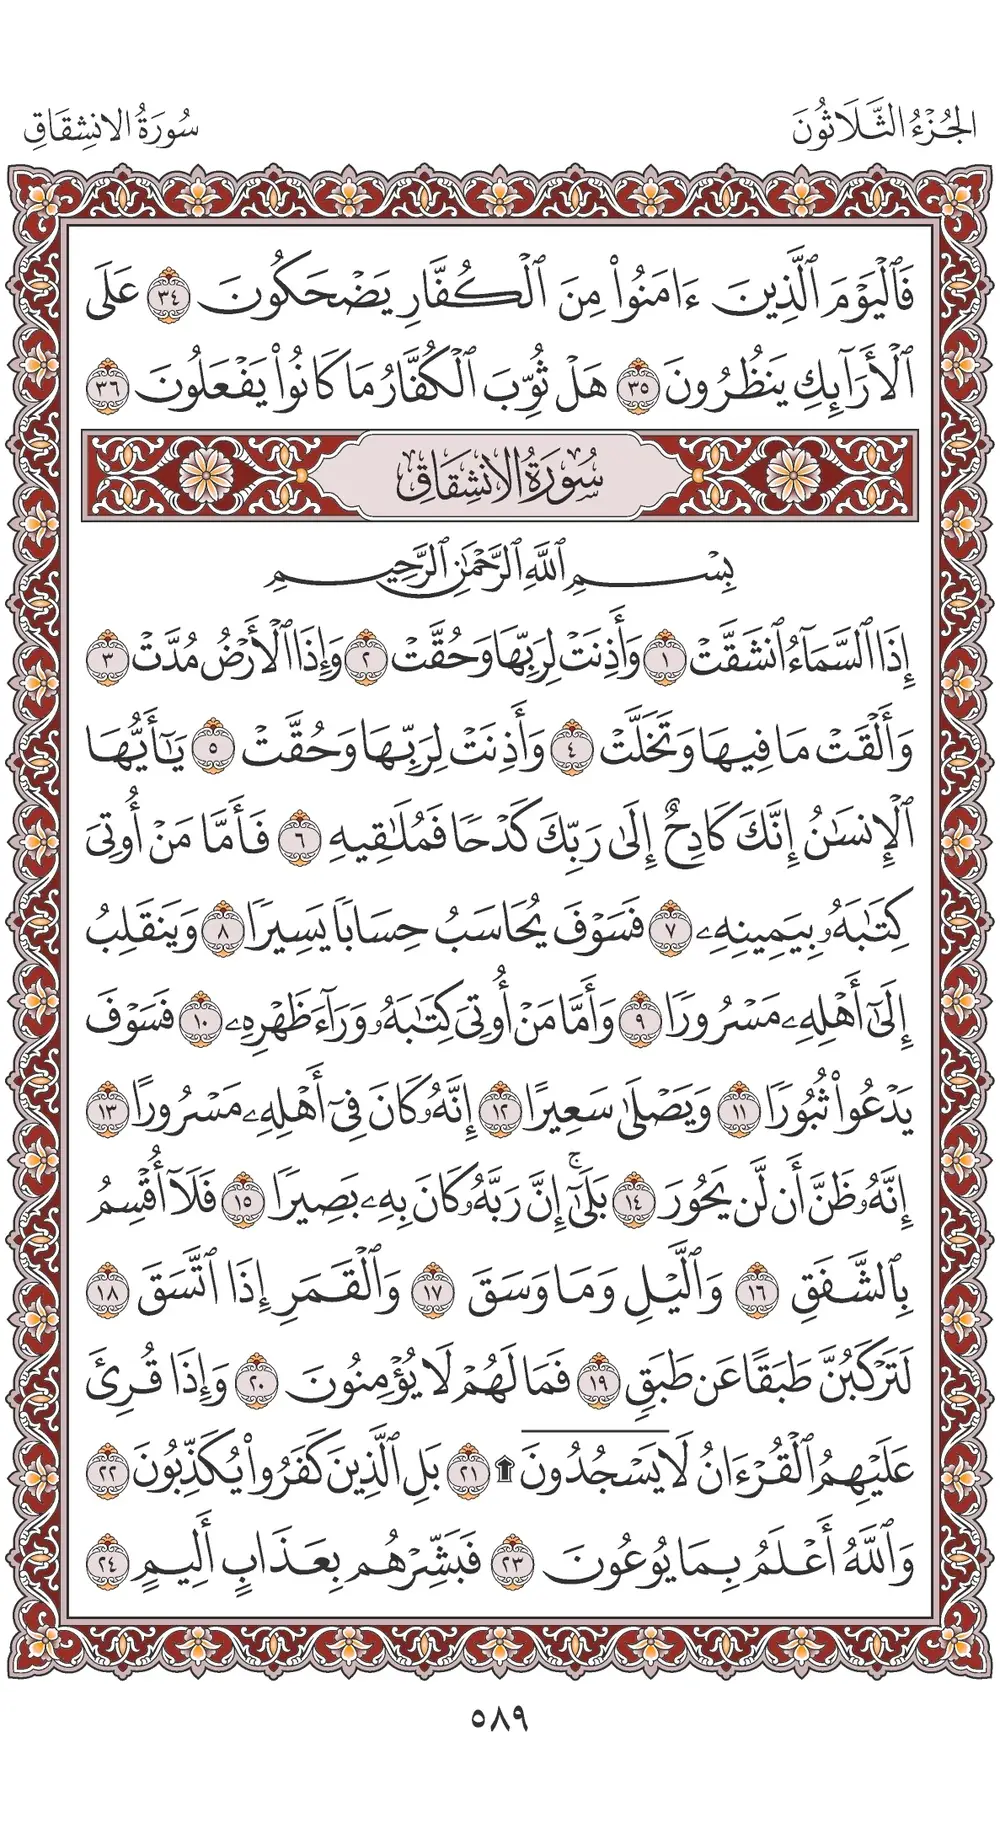 الجُزْءُ الثَّلَاثُونَ
سُورَةُ الانشِقَاقِ
فَٱلْيَوْمَ ٱلَّذِينَ ءَامَنُوا۟ مِنَ ٱلْكُفَّارِ يَضْحَكُونَ ٣٤ عَلَى
ٱلْأَرَآئِكِ يَنظُرُونَ ٣٥ هَلْ ثُوِّبَ ٱلْكُفَّارُ مَا كَانُوا۟ يَفْعَلُونَ ٣٦
سُورَةُ الانشِقَاقِ
بِسْمِ ٱللَّهِ ٱلرَّحْمَٰنِ ٱلرَّحِيمِ
إِذَا ٱلسَّمَآءُ ٱنشَقَّتْ ١ وَأَذِنَتْ لِرَبِّهَا وَحُقَّتْ ٢ وَإِذَا ٱلْأَرْضُ مُدَّتْ ٣
وَأَلْقَتْ مَا فِيهَا وَتَخَلَّتْ ٤ وَأَذِنَتْ لِرَبِّهَا وَحُقَّتْ ٥ يَٰٓأَيُّهَا
ٱلْإِنسَٰنُ إِنَّكَ كَادِحٌ إِلَىٰ رَبِّكَ كَدْحًا فَمُلَٰقِيهِ ٦ فَأَمَّا مَنْ أُوتِىَ
كِتَٰبَهُۥ بِيَمِينِهِۦ ٧ فَسَوْفَ يُحَاسَبُ حِسَابًا يَسِيرًا ٨ وَيَنقَلِبُ
إِلَىٰٓ أَهْلِهِۦ مَسْرُورًا ٩ وَأَمَّا مَنْ أُوتِىَ كِتَٰبَهُۥ وَرَآءَ ظَهْرِهِۦ ١٠ فَسَوْفَ
يَدْعُوا۟ ثُبُورًا ١١ وَيَصْلَىٰ سَعِيرًا ١٢ إِنَّهُۥ كَانَ فِىٓ أَهْلِهِۦ مَسْرُورًا ١٣
إِنَّهُۥ ظَنَّ أَن لَّن يَحُورَ ١٤ بَلَىٰٓۚ إِنَّ رَبَّهُۥ كَانَ بِهِۦ بَصِيرًا ١٥ فَلَآ أُقْسِمُ
بِٱلشَّفَقِ ١٦ وَٱلَّيْلِ وَمَا وَسَقَ ١٧ وَٱلْقَمَرِ إِذَا ٱتَّسَقَ ١٨
لَتَرْكَبُنَّ طَبَقًا عَن طَبَقٍ ١٩ فَمَا لَهُمْ لَا يُؤْمِنُونَ ٢٠ وَإِذَا قُرِئَ
عَلَيْهِمُ ٱلْقُرْءَانُ لَا يَسْجُدُونَ ۩ ٢١ بَلِ ٱلَّذِينَ كَفَرُوا۟ يُكَذِّبُونَ ٢٢
وَٱللَّهُ أَعْلَمُ بِمَا يُوعُونَ ٢٣ فَبَشِّرْهُم بِعَذَابٍ أَلِيمٍ ٢٤
٥٨٩